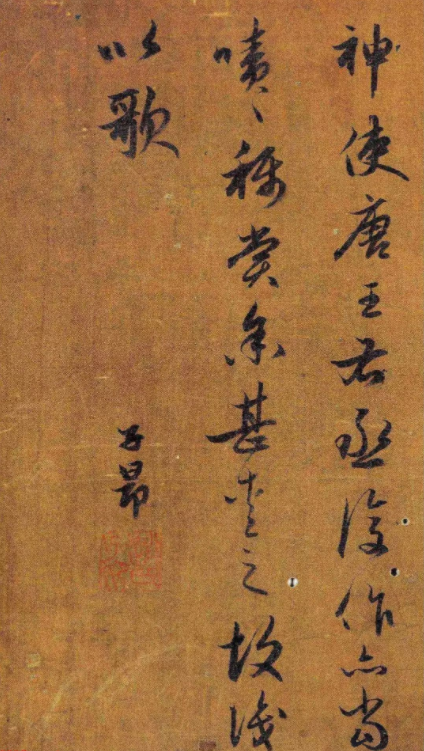 神使唐王右丞復作亦當
嘖〻稱賞余甚愛之故識
以歌
子昂